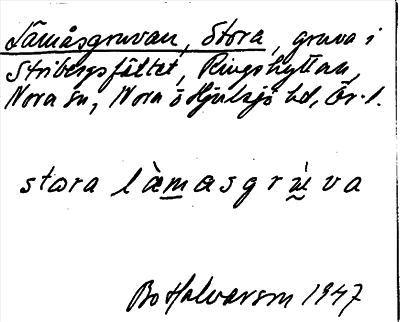 Lämåsgruvan, Stora, gruva i
Stribergsfältet, Ringshyttan,
Nora sn, Nora o Hjulsjö hd, Ör. l.
stora làmasgrùva
Bo Halvarson 1947